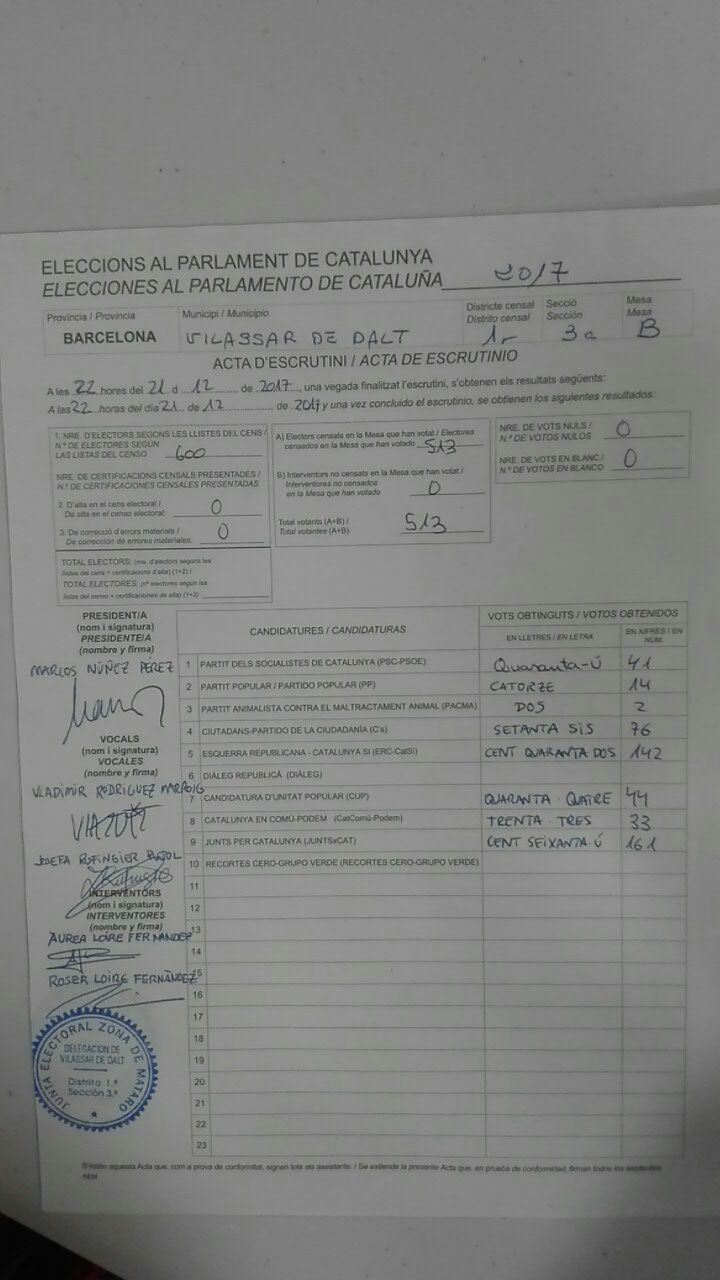 ELECCIONS AL PARLAMENT DE CATALUNYA
ELECCIONES AL PARLAMENTO DE CATALUÑA 2017
Província / Provincia
BARCELONA
Municipi / Municipio
VILASSAR DE DALT
Districte censal
Distrito censal
1r
Secció
Sección
3a
Mesa
Mesa
B
ACTA D'ESCRUTINI / ACTA DE ESCRUTINIO
A les 22 hores del 21 d 12 de 2017, una vegada finalitzat l'escrutini, s'obtenen els resultats següents:
A las 22 horas del día 21 de 12 de 2017 y una vez concluido el escrutinio, se obtienen los siguientes resultados:
1. NRE. D'ELECTORS SEGONS LES LLISTES DEL CENS /
N.º DE ELECTORES SEGÚN
LAS LISTAS DEL CENSO 600
NRE. DE CERTIFICACIONS CENSALS PRESENTADES /
N.º DE CERTIFICACIONES CENSALES PRESENTADAS
2. D'alta en el cens electoral /
De alta en el censo electoral: 0
3. De correcció d'errors materials /
De corrección de errores materiales: 0
TOTAL ELECTORS: (nre. d'electors segons les
llistes del cens + certificacions d'alta) (1+2) /
TOTAL ELECTORES: (nº electores según las
listas del censo + certificaciones de alta) (1+2)
A) Electors censats en la Mesa que han votat / Electores
censados en la Mesa que han votado 513
B) Interventors no censats en la Mesa que han votat /
Interventores no censados
en la Mesa que han votado 0
Total votants (A+B) /
Total votantes (A+B) 513
NRE. DE VOTS NULS /
N.º DE VOTOS NULOS 0
NRE. DE VOTS EN BLANC /
N.º DE VOTOS EN BLANCO 0
PRESIDENT/A
(nom i signatura)
PRESIDENTE/A
(nombre y firma)
MARCOS NÚÑEZ PEREZ
VOCALS
(nom i signatura)
VOCALES
(nombre y firma)
VLADIMIR RODRIGUEZ MARROIG
JOSEFA RUFINGIER PUJOL
INTERVENTORS
(nom i signatura)
INTERVENTORES
(nombre y firma)
ÀUREA LOIRE FERNANDEZ
ROSER LOIRE FERNÀNDEZ
JUNTA ELECTORAL ZONA DE MATARO
DELEGACION DE
VILASSAR DE DALT
Distrito 1.º
Sección 3.ª
CANDIDATURES / CANDIDATURAS
VOTS OBTINGUTS / VOTOS OBTENIDOS
EN LLETRES / EN LETRA
EN XIFRES / EN NUM.
1 PARTIT DELS SOCIALISTES DE CATALUNYA (PSC-PSOE) Quaranta-Ú 41
2 PARTIT POPULAR / PARTIDO POPULAR (PP) CATORZE 14
3 PARTIT ANIMALISTA CONTRA EL MALTRACTAMENT ANIMAL (PACMA) DOS 2
4 CIUTADANS-PARTIDO DE LA CIUDADANÍA (C's) SETANTA SIS 76
5 ESQUERRA REPUBLICANA - CATALUNYA SI (ERC-CatSí) CENT QUARANTA DOS 142
6 DIÀLEG REPUBLICÀ (DIÀLEG)
7 CANDIDATURA D'UNITAT POPULAR (CUP) QUARANTA-QUATRE 44
8 CATALUNYA EN COMÚ-PODEM (CatComú-Podem) TRENTA-TRES 33
9 JUNTS PER CATALUNYA (JUNTSxCAT) CENT SEIXANTA-Ú 161
10 RECORTES CERO-GRUPO VERDE (RECORTES CERO-GRUPO VERDE)
11
12
13
14
15
16
17
18
19
20
21
22
23
S'estén aquesta Acta que, com a prova de conformitat, signen tots els assistents. / Se extiende la presente Acta que, en prueba de conformidad, firman todos los asistentes